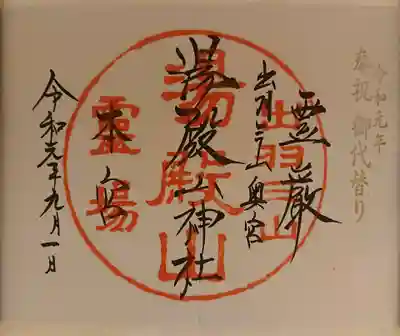 令和元年
奉祝 御代替り
霊巌
出羽三山奥宮
湯殿山神社
本宮
令和元年九月一日
出羽三山
湯殿山
霊場